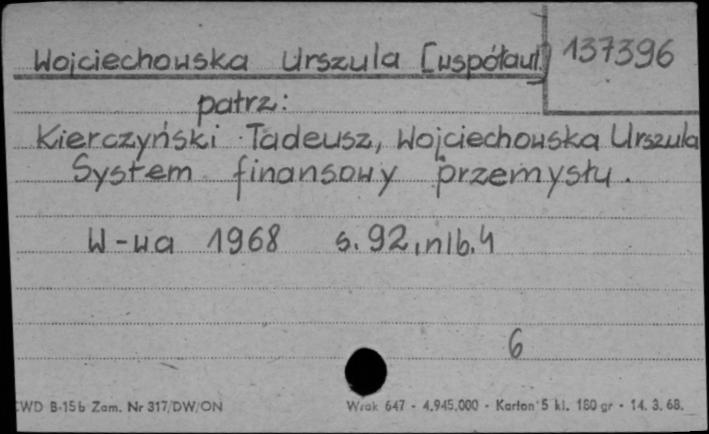 Wojciechowska Urszula [współaut.] 137396
patrz:
Kierczyński Tadeusz, Wojciechowska Urszula
System finansowy przemysłu.
W-wa 1968 s. 92, nlb. 4
6
CWD B-15b Zam. Nr 317/DW/ON Wrak 647 - 4.945.000 - Karton 5 kl. 180 gr - 14. 3. 68.